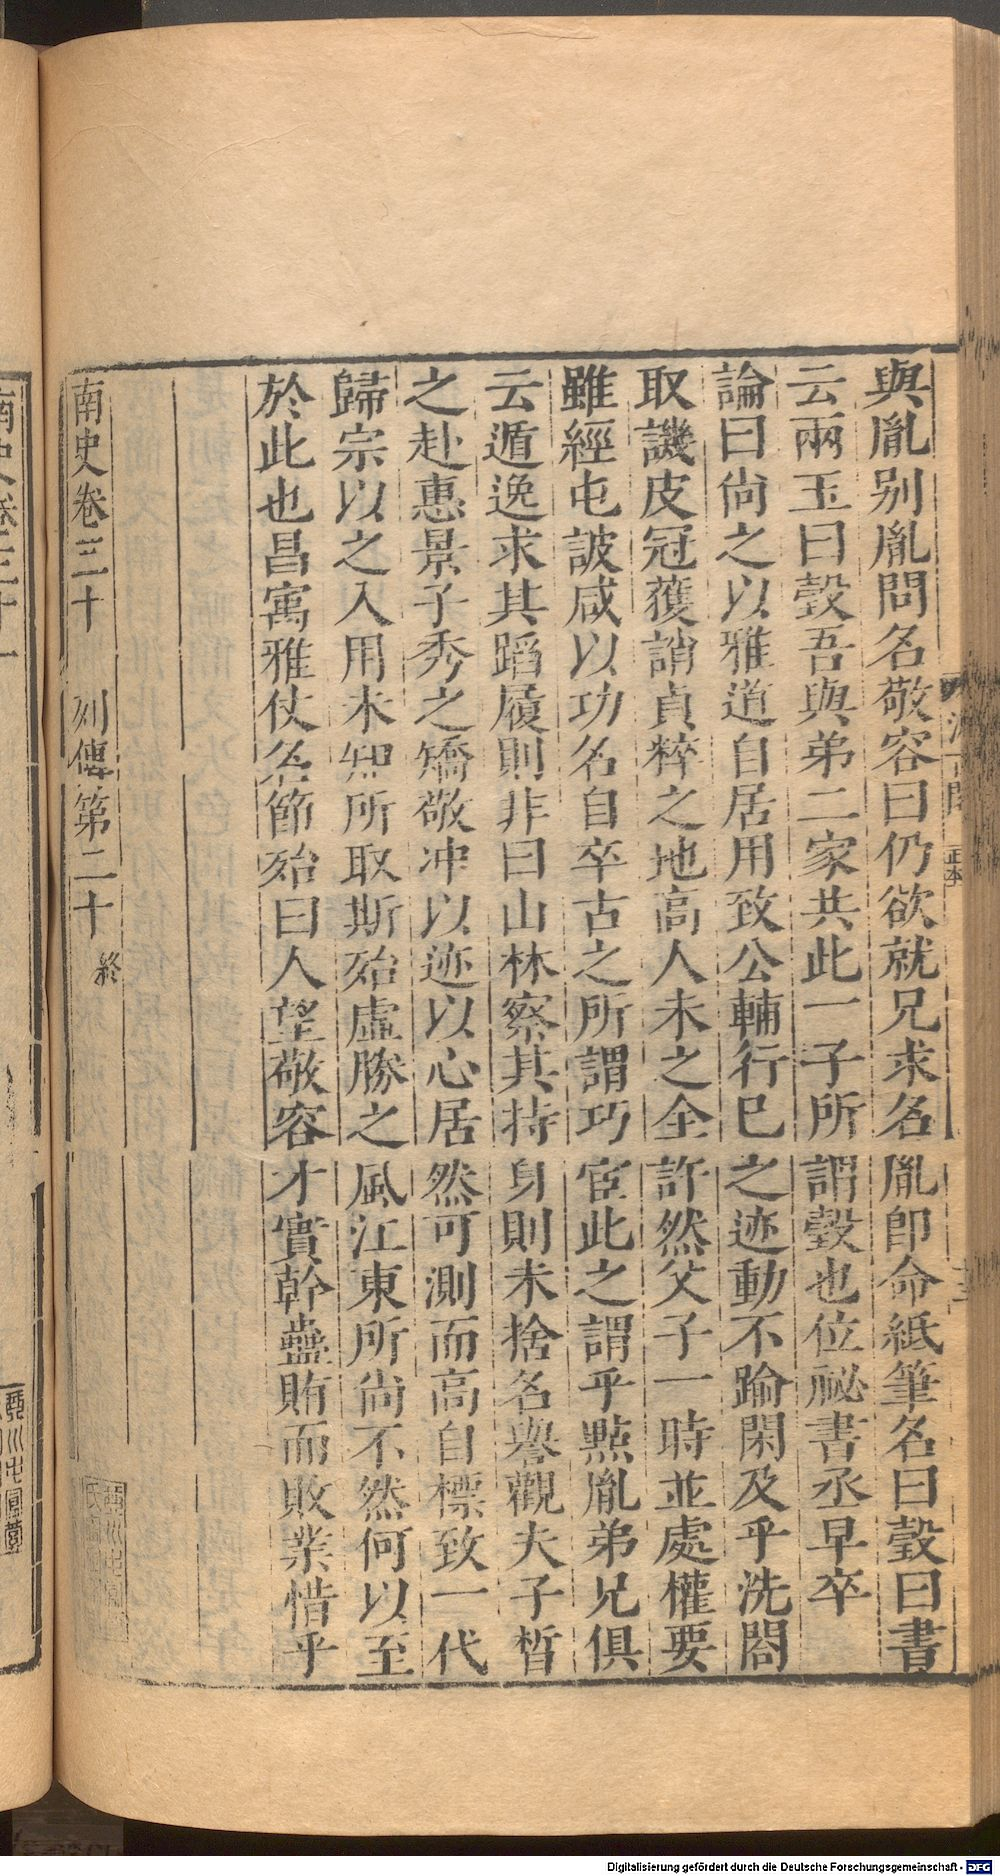 與胤别胤問名敬容曰仍欲就兄求名胤卽命紙筆名曰瑴曰書
云兩玉曰瑴吾與弟二家共此一子所謂瑴也位祕書丞早卒
論曰尙之以雅道自居用致公輔行已之迹動不踰閑及乎洗閤
取譏皮冠獲誚貞粹之地高人未之全許然父子一時並處權要
雖經屯詖咸以功名自卒古之所謂巧宦此之謂乎點胤弟兄俱
云遁逸求其蹈履則非曰山林察其持身則未捨名譽觀夫子晳
之赴惠景子秀之矯敬冲以迹以心居然可測而高自標致一代
歸宗以之入用未知所取斯殆虛勝之風江東所尙不然何以至
於此也昌寓雅仗名節殆曰人望敬容才實幹蠱賄而敗業惜乎
南史卷三十 列傳第二十 終
Digitalisierung gefördert durch die Deutsche Forschungsgemeinschaft - DFG